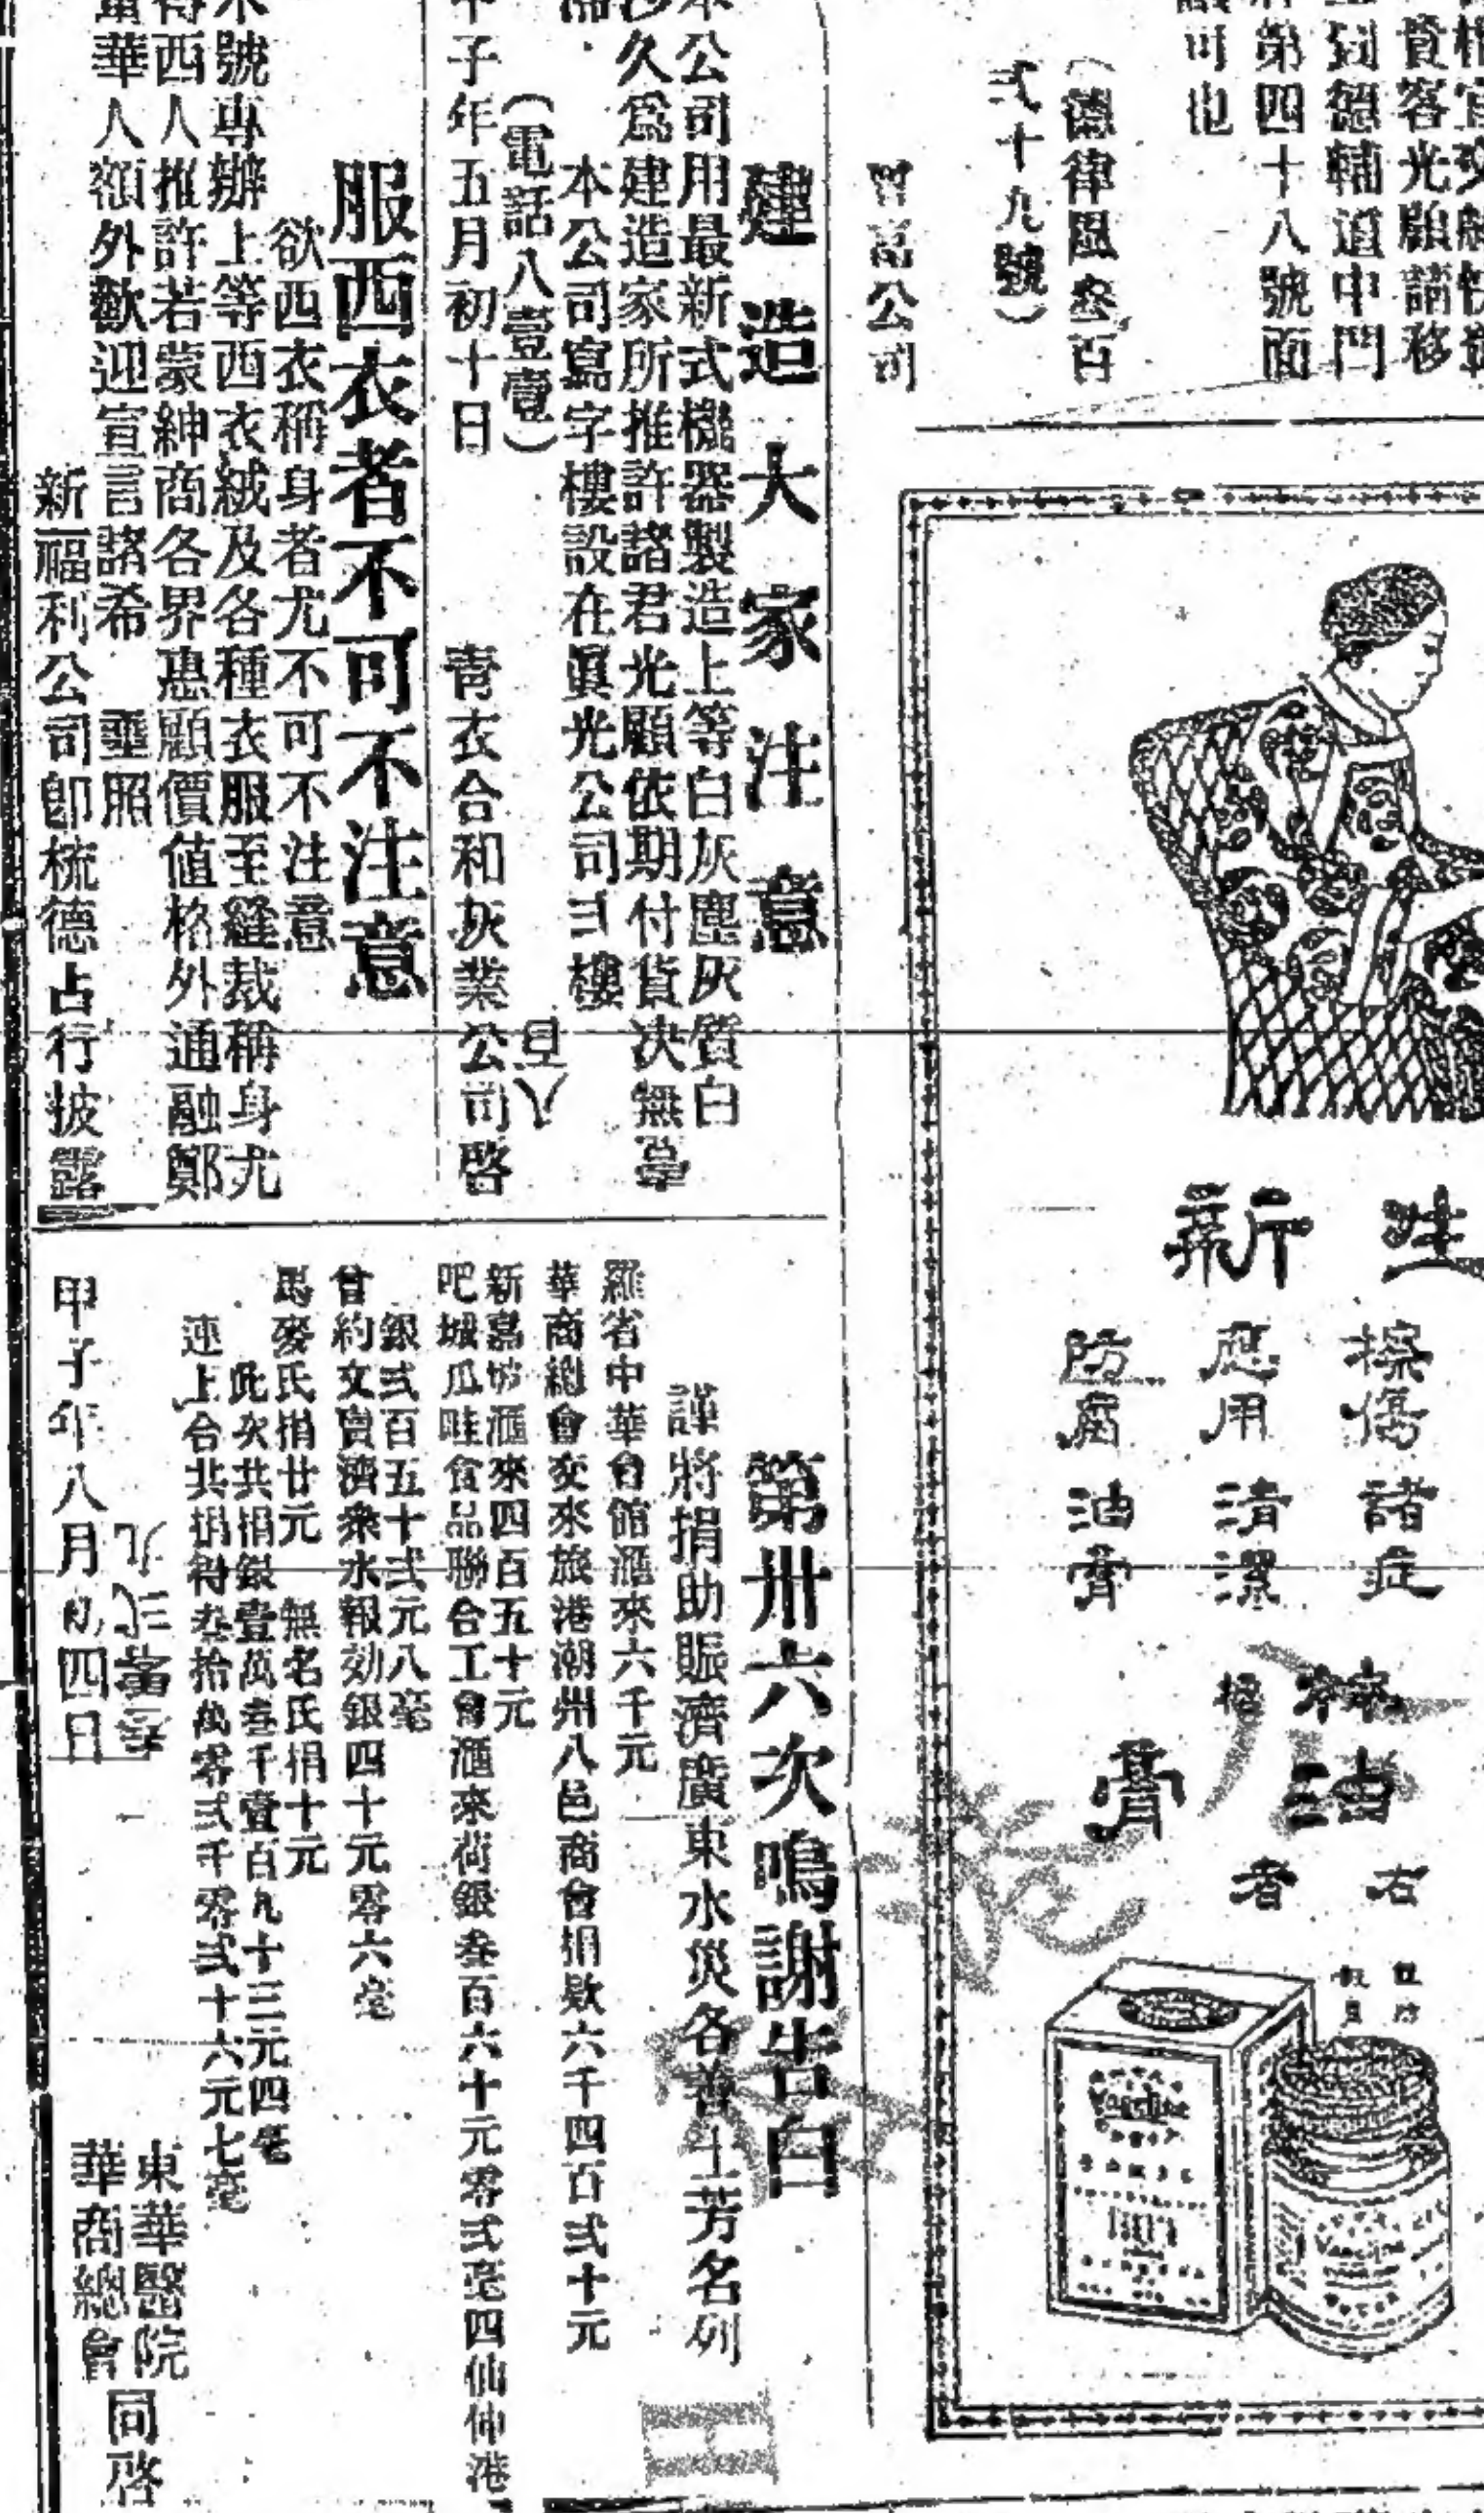 貴客光顧請移
到德輔道中門
第四十八號面
可也
(德律風叁百
弍十九號)
公司
建造大家注意
本公司用最新式機器製造上等白灰塵灰質白
沙久爲建造家所推許諸君光顧依期付貨決無
本公司寫字樓設在眞光公司弎樓
(電話八壹壹)
甲子年五月初十日
青衣合和灰業公司啓
百八
服西衣者不可不注意
欲西衣稱身者尤不可不注意
本號專辦上等西衣絨及各種衣服至縫裁稱身尤
得西人推許若蒙紳商各界惠顧價值格外通融鄭
當華人額外歡迎宣言諸希 垂照
新福利公司卽梳德占行披露
第卅六次鳴謝告白
謹將捐助賑濟廣東水災各善士芳名列
羅省中華會館滙來六千元
華商總會交來旅港潮州八邑商會捐欵六千四百弍十元
新嘉坡滙來四百五十元
吧城瓜哇食品聯合工會滙來荷銀叁百六十元零弍毫四仙伸港
銀弍百五十弍元八毫
甘約文賣濟衆水報効銀四十元零六毫
馬麥氏捐廿元 無名氏捐十元
此次共捐銀壹萬叁千壹百九十三元四毫
連上合共捐得叁拾萬零弍千零弍十六元七毫
甲子年八月初四日
東華醫院
華商總會
同啓
新
擦傷諸症
應用清潔
防腐油膏
油
膏
右
者
Vaseline